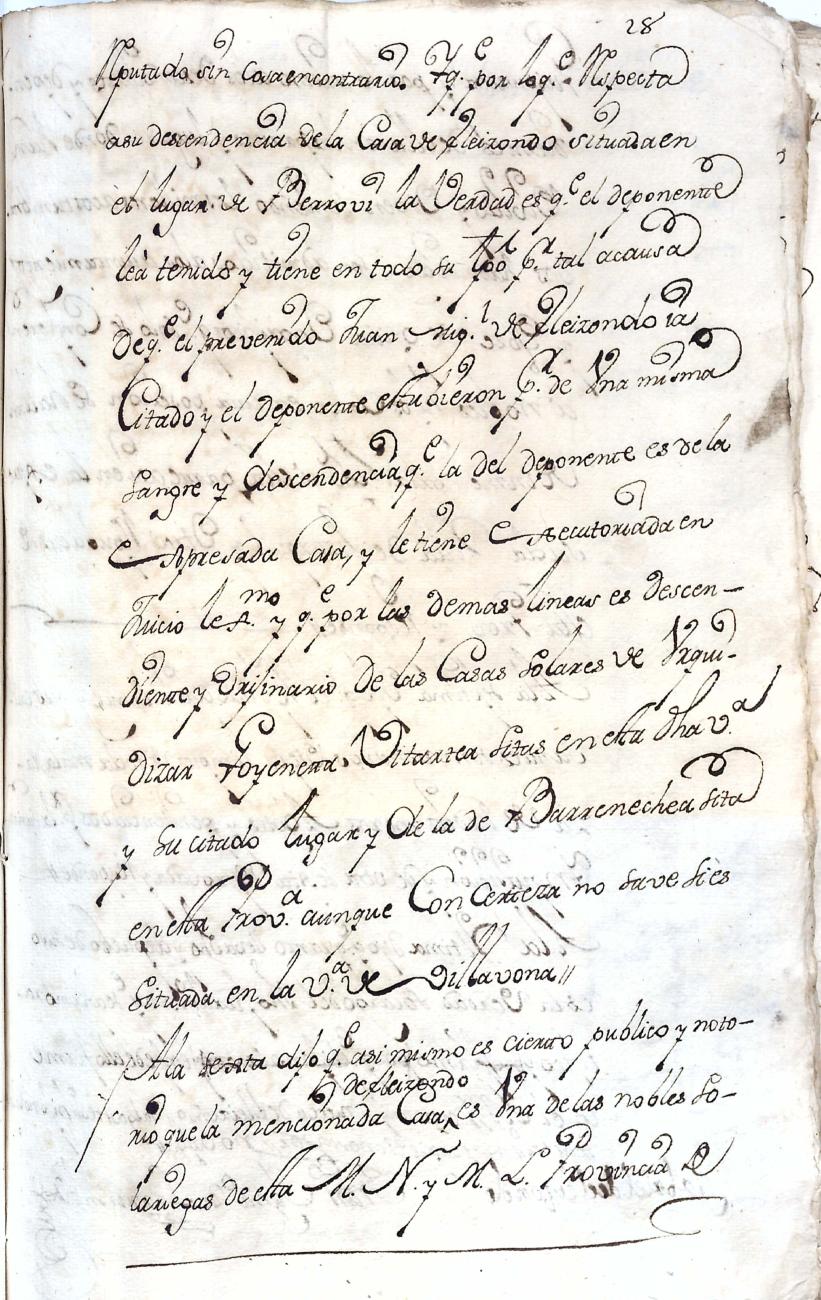 28
Reputado sin cosa en contrario. Y q.e por lo q.e Respecta
a su descendencia de la Casa de fleizondo situada en
el lugar de Berrovi la Verdad es q.e el deponente
le à tenido y tiene en todo su tpo p.r tal a causa
De q.e el prevenido Juan Mig.l de fleizondo ià
Citado y el deponente estudieron p.r de Una misma
sangre y descendencia, q.e la del deponente es de la
expresada Casa, y le tiene executoriada en
Juicio lex.mo y q.e por las demas lineas es descen-
diente y Orijinario De las Casas solares de Vrqui-
dizar Goyenetta Vitartea sitas en esta dha V.a
y su citado lugar y de la de Barrenechea sita
en esta Prov.a aunque Con Certeza no save si es
situada en la V.a de Villavona//
A la sexta dijo q.e asi mismo es cierto publico y noto-
de fleizondo
rio que la mencionada Casa es Vna de las nobles so-
lariegas de esta M. N. y M. L. Provincia